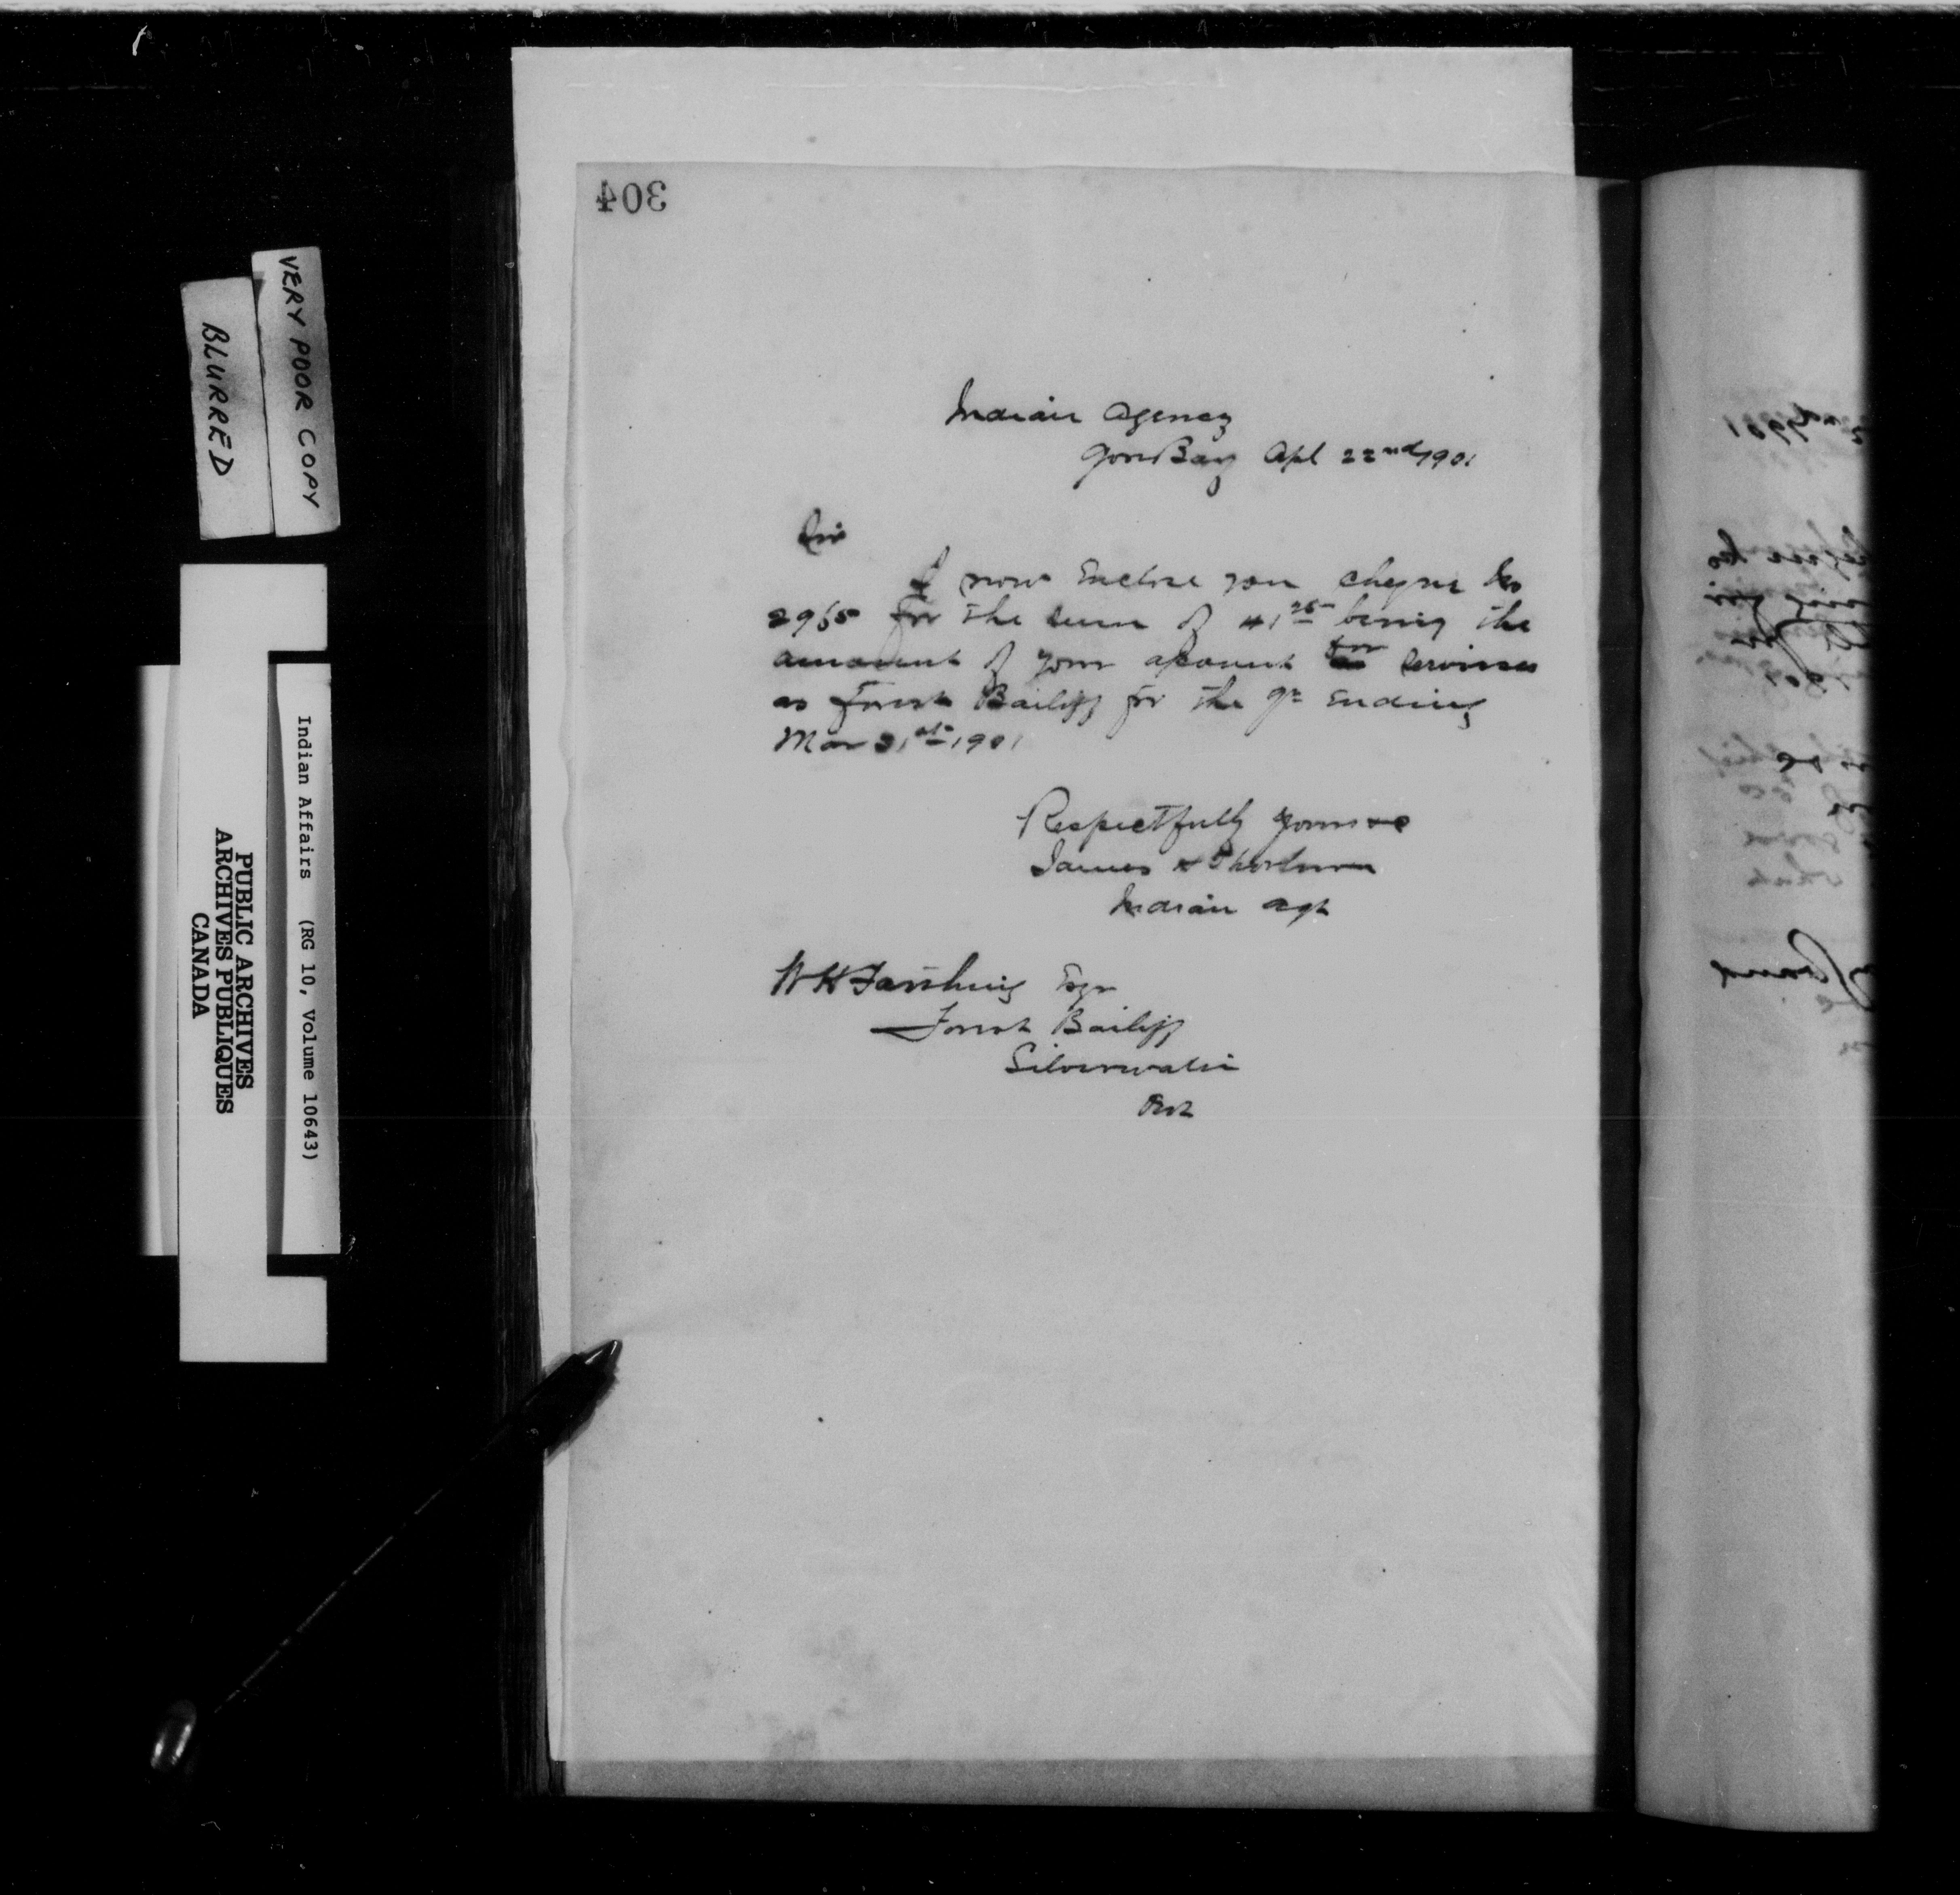 304
Indian Agency
Gore Bay Apl 22nd 1901
Sir
I now Enclose you cheque No
2965 for the sum of 41 25 being the
amount of your account for services
as Forest Bailiff for the qr Ending
Mar 31st 1901
Respectfully yours
James H Thorburn
Indian Agt
W H Esqr
Forest Bailiff
Silverwater
Ont
VERY POOR COPY
BLURRED
Indian Affairs (RG 10, Volume 10643)
PUBLIC ARCHIVES
ARCHIVES PUBLIQUES
CANADA